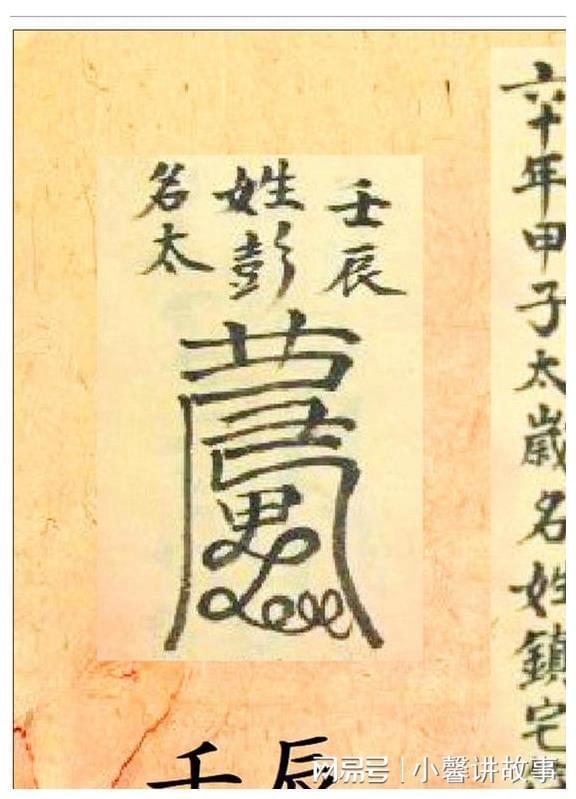 六十年甲子太歲名姓鎮宅
壬辰
姓彭
名太
壬辰
网易号 | 小馨讲故事